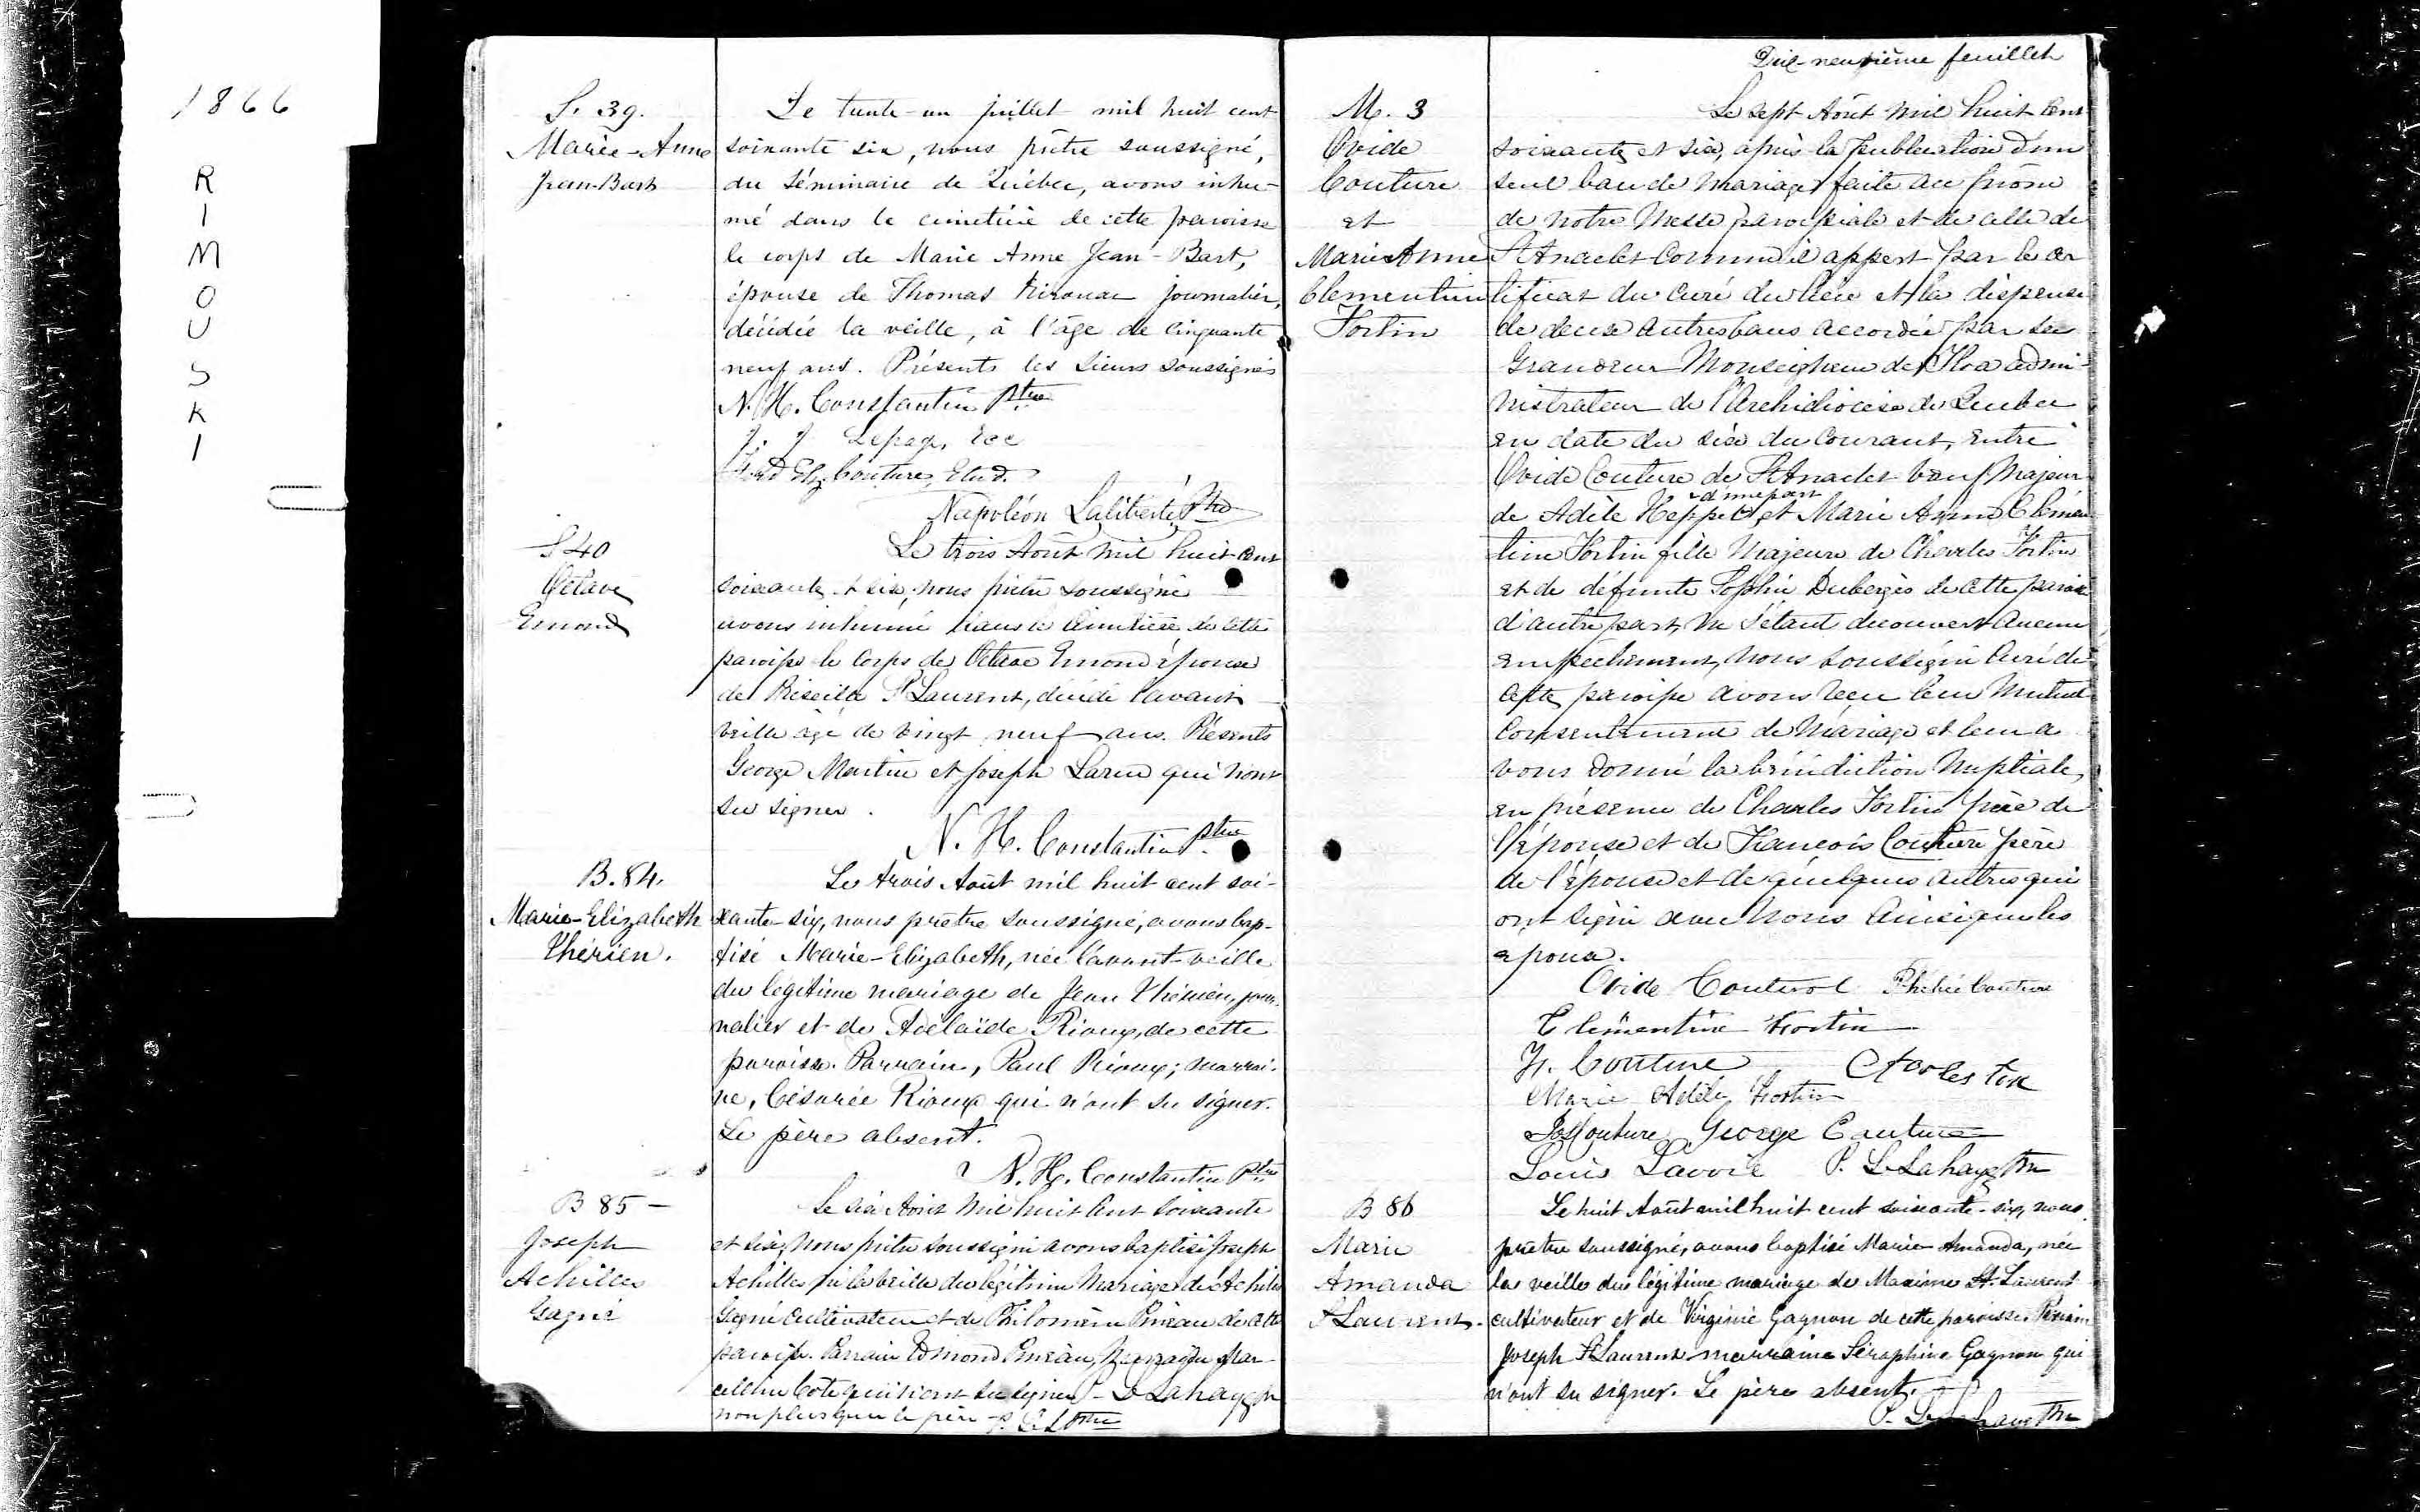 1866
RIMOUSKI
S. 39.
Marie-Anne
Jean-Bart
Le trente-un juillet mil huit cent
soixante six, nous prêtre soussigné,
du Séminaire de Québec, avons inhu-
mé dans le cimetière de cette paroisse
le corps de Marie Anne Jean-Bart,
épouse de Thomas Kirouac journalier,
décédée la veille, à l'âge de cinquante
neuf ans. Présents les Sieurs soussignés
N. H. Constantin Ptre
J. J. Lepage, Ecc
Elz. Couture, Etud.
Napoléon Laliberté, Ptre
S 40
Octave
Emond
Le trois Août mil huit cent
soixante & six, nous prêtre soussigné
avons inhumé dans le cimetière de cette
paroisse le corps de Octave Emond épouse
de Priscille St Laurent, décédé l'avant
veille âgé de vingt neuf ans. Présents
George Martin et Joseph Larue qui n'ont
su signer.
N. H. Constantin Ptre
B. 84.
Marie-Elizabeth
Thérien.
Le trois Août mil huit cent soi-
xante-six, nous prêtre soussigné, avons bap-
tisé Marie-Elizabeth, née l'avant-veille
du légitime mariage de Jean Thérien, jour-
nalier et de Adelaïde Rioux, de cette
paroisse. Parrain, Paul Rioux; marrai-
ne, Césarée Rioux qui n'ont su signer.
Le père absent.
N. H. Constantin Ptre
B 85 -
Joseph
Achilles
Gagné
Le six Août mil huit cent soixante
et six, nous prêtre soussigné avons baptisé Joseph
Achilles né la veille du légitime mariage de Achilles
Gagné cultivateur et de Philomène Pineau de cette
paroisse. Parrain Edmond Pineau, Marraine Mar-
celline Coté qui n'ont su signer P. L. Lahaye Ptre
non plus que le père - P. L. L. Ptre
Dix-neuvième feuillet
M. 3
Ovide
Couture
et
Marie Anne
Clementine
Fortin
Le sept Août mil huit cent
soixante et six, après la publication d'un
seul ban de mariage faite au prône
de notre Messe paroissiale et de celle de
St Anaclet comme il appert par le cer
tificat du curé du lieu et la dispense
de deux autres bans accordée par sa
Grandeur Monseigneur de Tloa admi-
nistrateur de l'Archidiocèse de Québec
en date du six du courant, entre
Ovide Couture de St Anaclet veuf majeur
de Adèle Heppel d'une part et Marie Anne Clémen
tine Fortin fille majeure de Charles Fortin
et de défunte Sophie Dubergès de cette paroisse
d'autre part, ne s'étant découvert aucun
empechement, nous soussigné curé de
cette paroisse avons reçu leur mutuel
consentement de mariage et leur a
vons donné la bénédiction nuptiale,
en présence de Charles Fortin père de
l'épouse et de François Couture père
de l'épouse et de quelques autres qui
ont signé avec nous ainsi que les
epoux.
Ovide Couture Couture
Clémentine Fortin
F. Couture
Marie Adèle Fortin
Jos Couture George Couture
Louis Lavoie P. L. Lahaye Ptre
B 86
Marie
Amanda
St Laurent.
Le huit Août mil huit cent soixante-six, nous
prêtre soussigné, avons baptisé Marie Amanda, née
la veille du légitime mariage de Maxime St. Laurent
cultivateur et de Virginie Gagnon de cette paroisse. Parrain
Joseph St Laurent marraine Séraphine Gagnon qui
n'ont su signer. Le père absent.
P. L. Lahaye Ptre